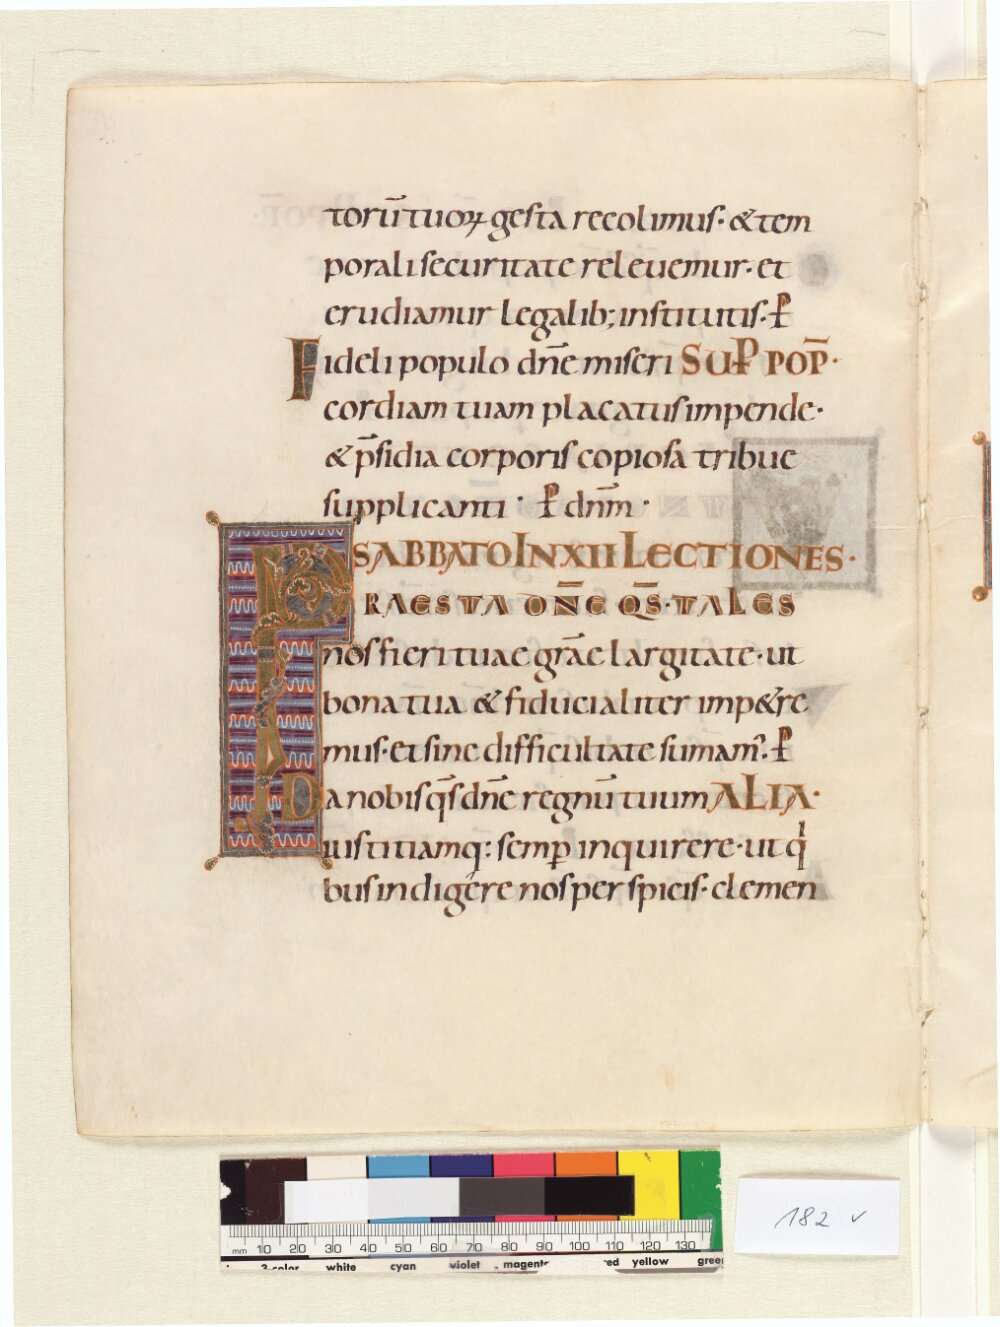 torū tuoꝝ gesta recolimus· & tem
porali securitate releuemur· et
erudiamur legalib; institutis· ꝑ
Fideli populo dn̄e miseri SUꝐ POP̄·
cordiam tuam placatus impende·
& p̄sidia corporis copiosa tribue
supplicanti · ꝑ dnm̄ ·
SABBATO IN XII LECTIONES·
PRAESTA DN̄E QS̄· TALES
nos fieri tuae grāe largitate· ut
bona tua & fiducialiter imp&re
mus· et sine difficultate sumam᷒· ꝑ
Da nobis qs̄ dn̄e regnū tuum ALIA·
iustitiamq: semꝑ inquirere· ut q
bus indigere nos perspicis· clemen
182 v
mm 10 20 30 40 50 60 70 80 90 100 110 120 130
3-color white cyan violet magenta red yellow green